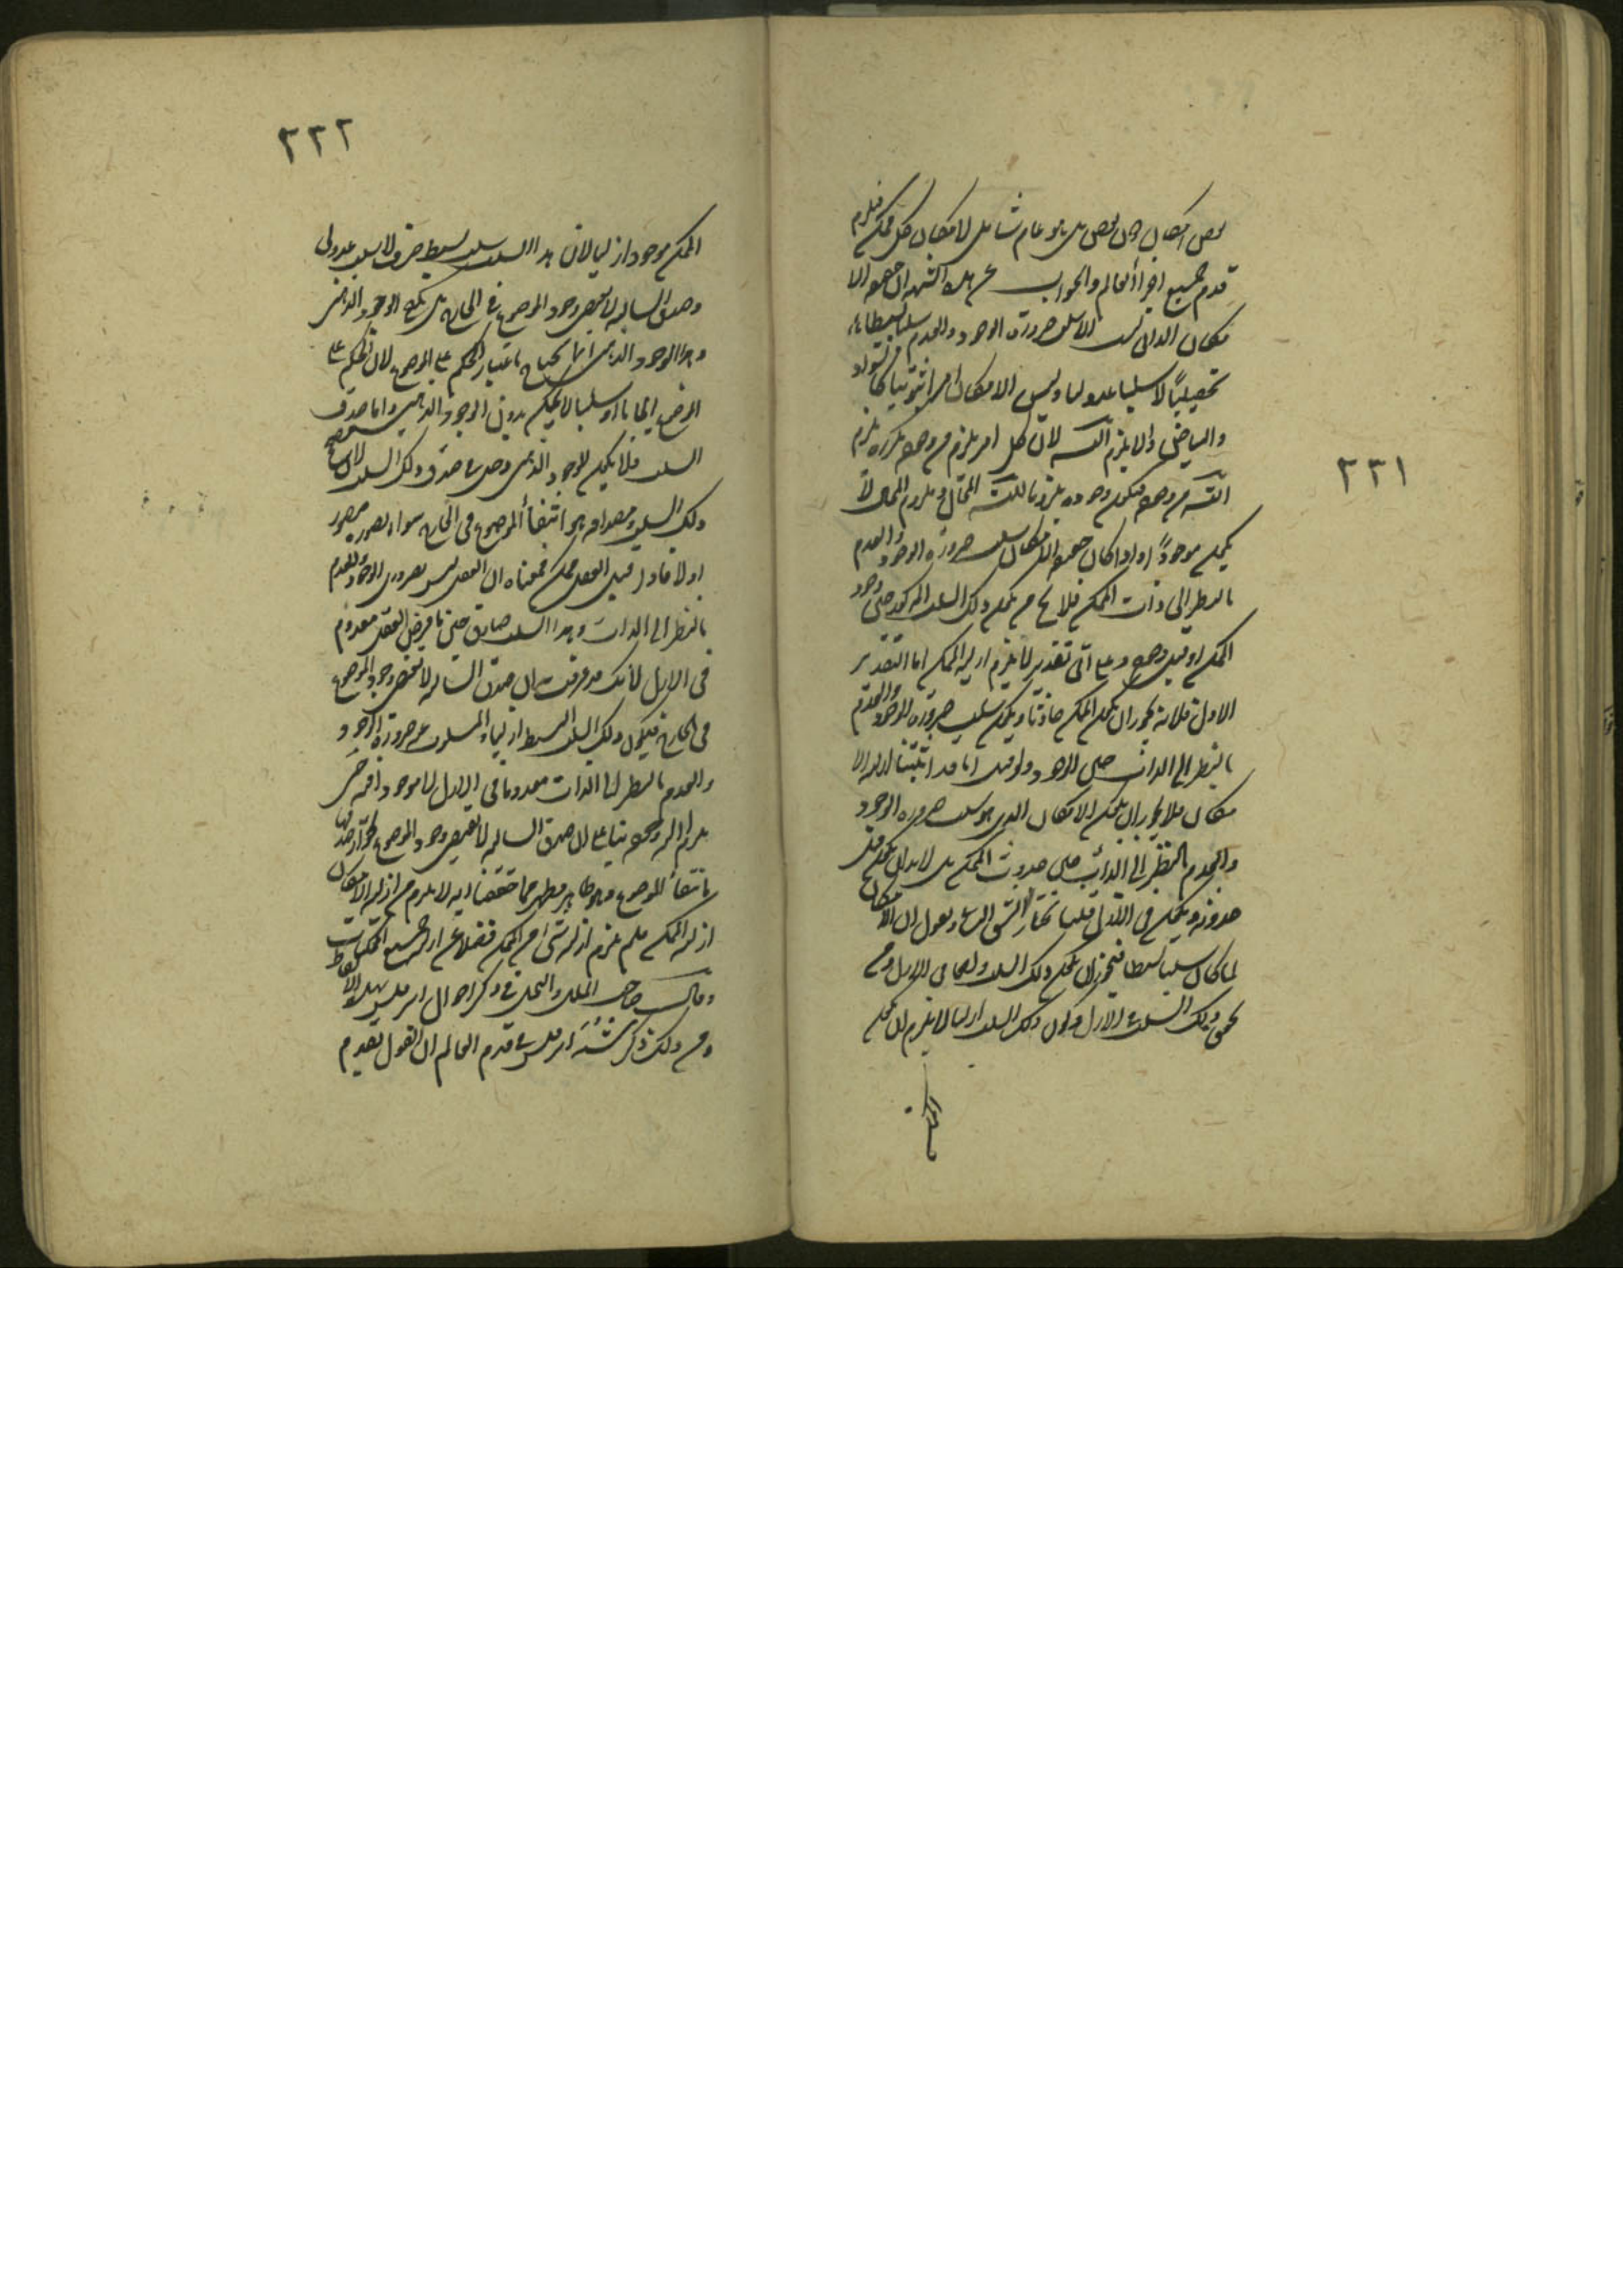 ٢٢١
بعض امكان دون بعض بل هو عام شامل لامكان كل ممكن فيلزم
قدم جميع اجزاء العالم والجواب عن هذه الشبهة ان حقيقة الا
مكان الذاتى ليست الا سلب ضرورة الوجود والعدم سلبا بسيطا
تحصيليًا لا سلبا عدوليا وليس الامكان امرا ثبوتيا كالسواد
والبياض والا يلزم التسـ لان كل امر يلزم من وجوده تكرره يلزم
التسـ من وجوده فيكون وجوده ملزوما للتسـ المحال وملزوم المحال لا
يكون موجودًا واذا كان حقيقة الامكان سلب ضرورة الوجود والعدم
بالنظر الى ذات الممكن فلا يخ من ان يكون ذلك السلب المذكور حين وجود
الممكن او قبل وجوده وعلى اى تقدير لا يلزم ازلية الممكن اما التقدير
الاول فلانه يجوز ان يكون الممكن حادثا ويكون سلب ضرورة الوجود والعدم
بالنظر الى الذات حين الوجود ولو قيل انا قد اثبتنا ازلية الا
مكان فلا يجوز ان يكون الامكان الذى هو سلب ضرورة الوجود
والعدم بالنظر الى الذات حين حدوث الممكن بل لابد ان يكون قبل
حدوثه ويكون فى الازل قلنا نختار الشق الثانى ونقول ان الامكان
لما كان سلبا بسيطا فيجوز ان يكون ذلك السلب واقعا فى الازل ومع
تحقق ذلك السلب فى الازل وكون ذلك السلب ازليا لا يلزم ان يكون
الممكن
٢٢٢
الممكن موجودا ازليا لان هذا السلب سلب بسيط صرف لا سلب عدولى
وصدق السالبة لا يقتضى وجود الموضوع فى الخارج بل يكفى الوجود الذهنى
وهذا الوجود الذهنى انما يحتاج باعتبار الحكم على الموضوع لان الحكم على
الموضوع ايجابا او سلبا لا يمكن بدون الوجود الذهنى واما صدق
السلب فلا يكون للوجود الذهنى دخل فى صدق ذلك السلب لان
ذلك السلب ومصداقه هو انتفاء الموضوع فى الخارج سواء تصوره متصور
او لا فاذا قيل العقل ممكن فمعناه ان العقل ليس بضرورى الوجود والعدم
بالنظر الى الذات وهذا السلب صادق حين ما فرض العقل معدوم
فى الازل لانك قد عرفت ان صدق السالبة لا يقتضى وجود الموضوع
فى الخارج فيكون ذلك السلب البسيط ازليا والمسلوب عنه ضرورة الوجود
والعدم بالنظر الى الذات معدوما فى الازل لا موجودا فمن اين
يلزم ازلية وجوده بناء على ان صدق السالبة لا يقتضى وجود الموضوع لجواز صدقها
بانتفاء الموضوع وهو ظاهر فظهر مما حققنا انه لا يلزم من ازلية الامكان
ازلية الممكن فلم يلزم ازلية شئ من الممكن فضلا عن ازلية جميع الممكنات
وقال صاحب الملل والنحل فى ذكر احوال ابرقلس بهذه الالفاظ
ومن ذلك ذكر شبه ابرقلس فى قدم العالم ان القول بقدم